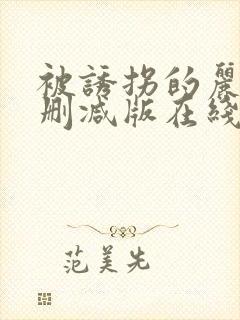 被誘拐的麗
刪减版在綫
范美先